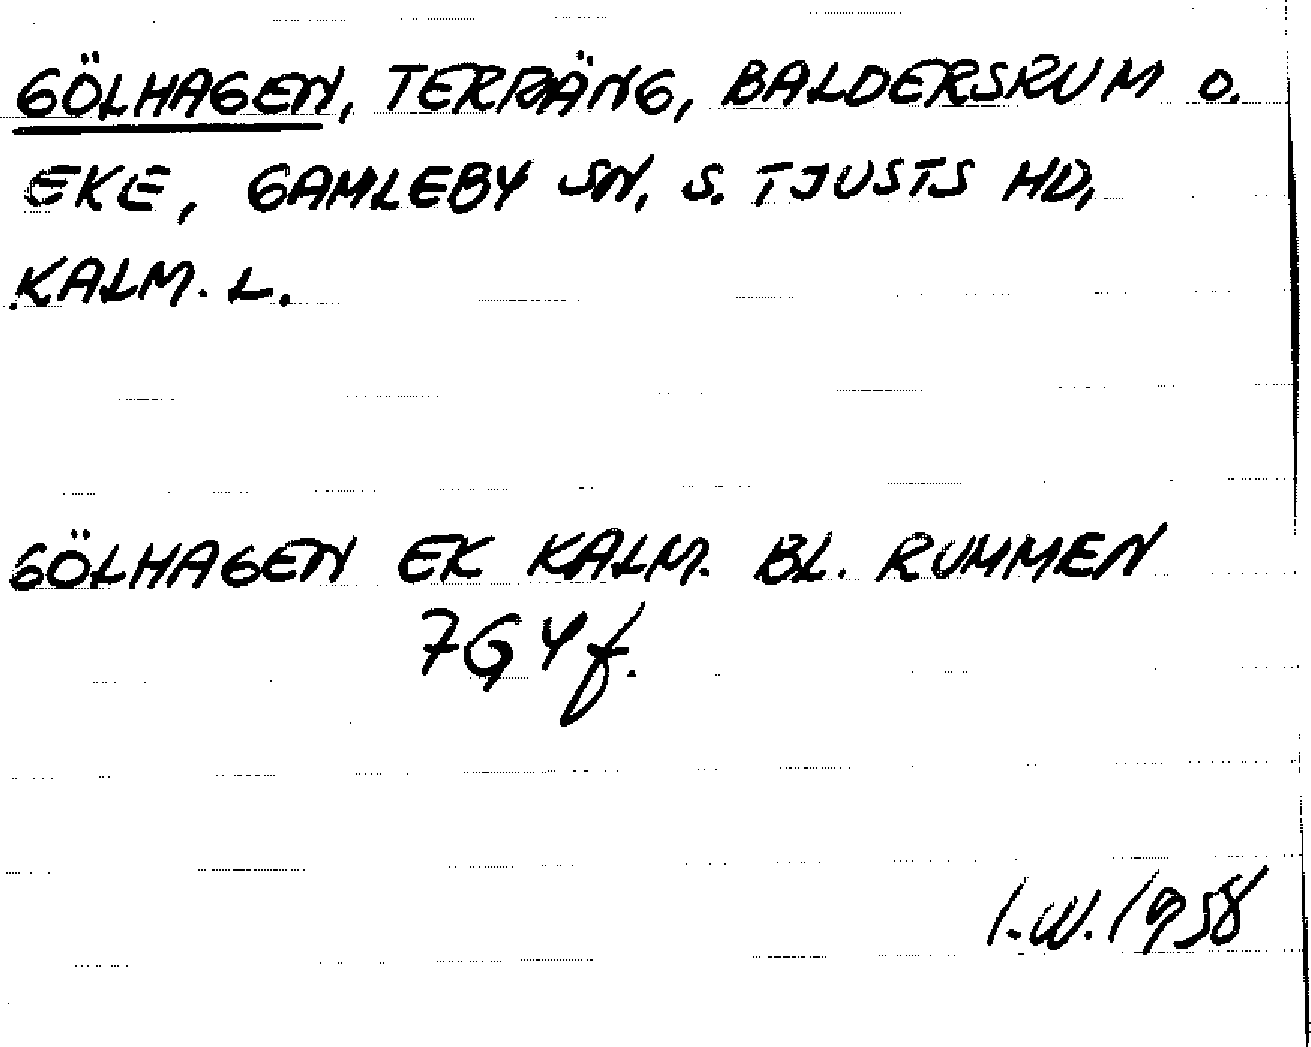 GÖLHAGEN, TERRÄNG, BALDERSRUM O.
EKE, GAMLEBY SN, S. TJUSTS HD,
KALM. L.
GÖLHAGEN EK KALM. BL. RUMMEN
7G4f.
I.W. 1958